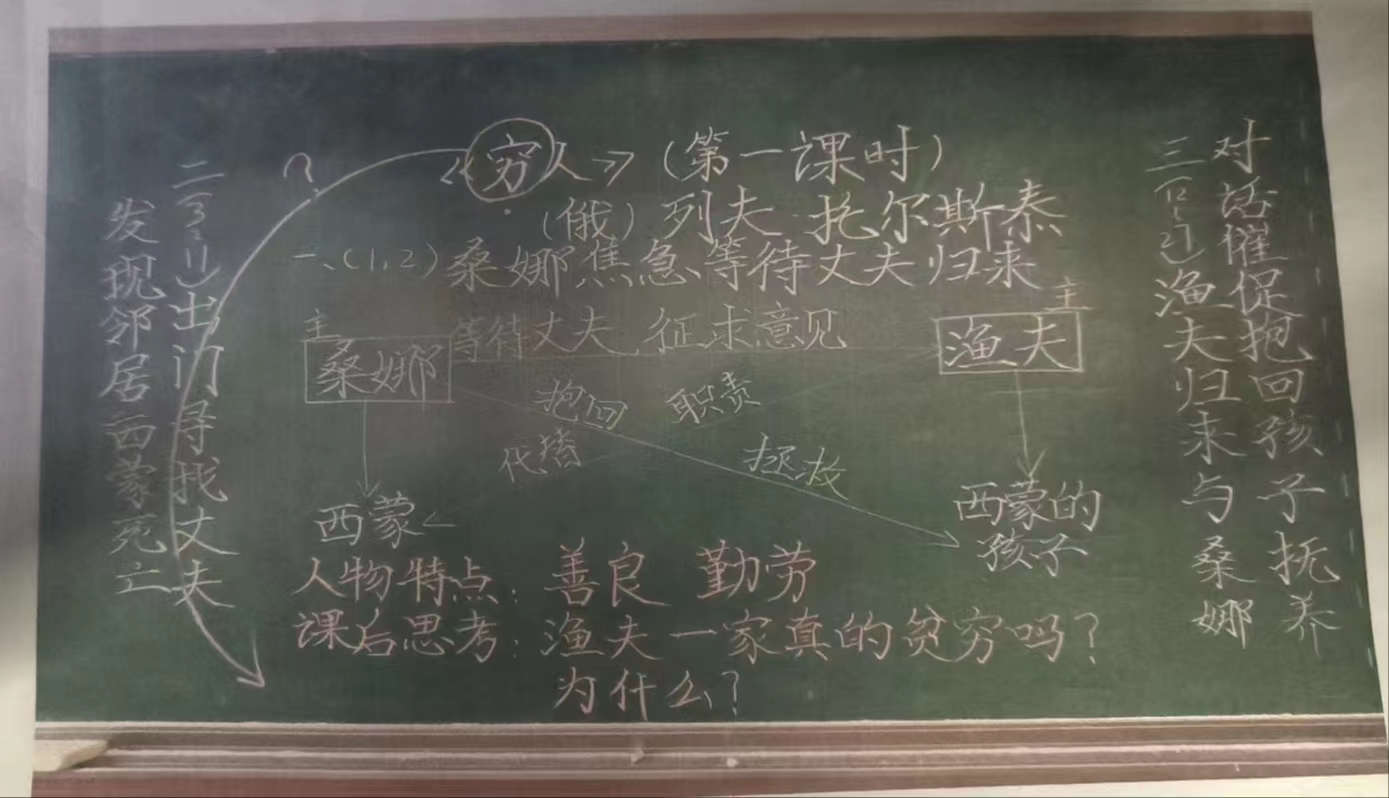 《穷人》(第一课时)
(俄)列夫·托尔斯泰
一、(1,2)桑娜焦急等待丈夫归来
主
桑娜
等待丈夫 征求意见
主
渔夫
抱回 职责
代替 拯救
西蒙
西蒙的
孩子
人物特点：善良 勤劳
课后思考：渔夫一家真的贫穷吗？
为什么？
二(3~11)出门寻找丈夫
发现邻居西蒙死亡
?
三(12~27)渔夫归来与桑娜
对话催促抱回孩子抚养